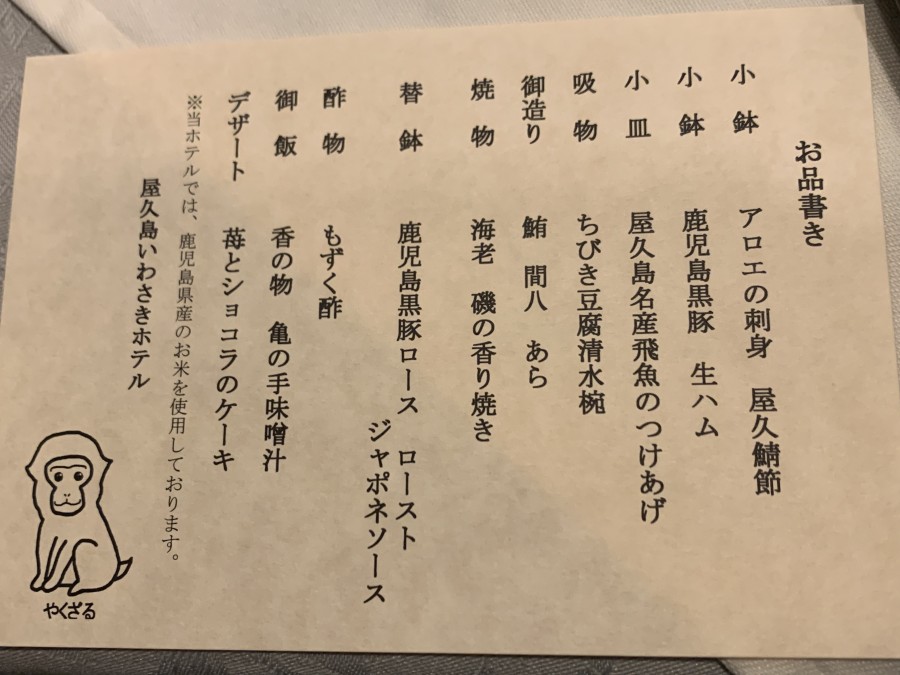 お品書き
小鉢　アロエの刺身　屋久鯖節
小鉢　鹿児島黒豚　生ハム
小皿　屋久島名産飛魚のつけあげ
吸物　ちびき豆腐清水椀
御造り　鮪　間八　あら
焼物　海老　磯の香り焼き
替鉢　鹿児島黒豚ロース　ロースト
ジャポネソース
酢物　もずく酢
御飯　香の物　亀の手味噌汁
デザート　苺とショコラのケーキ
※当ホテルでは、鹿児島県産のお米を使用しております。
屋久島いわさきホテル
やくざる